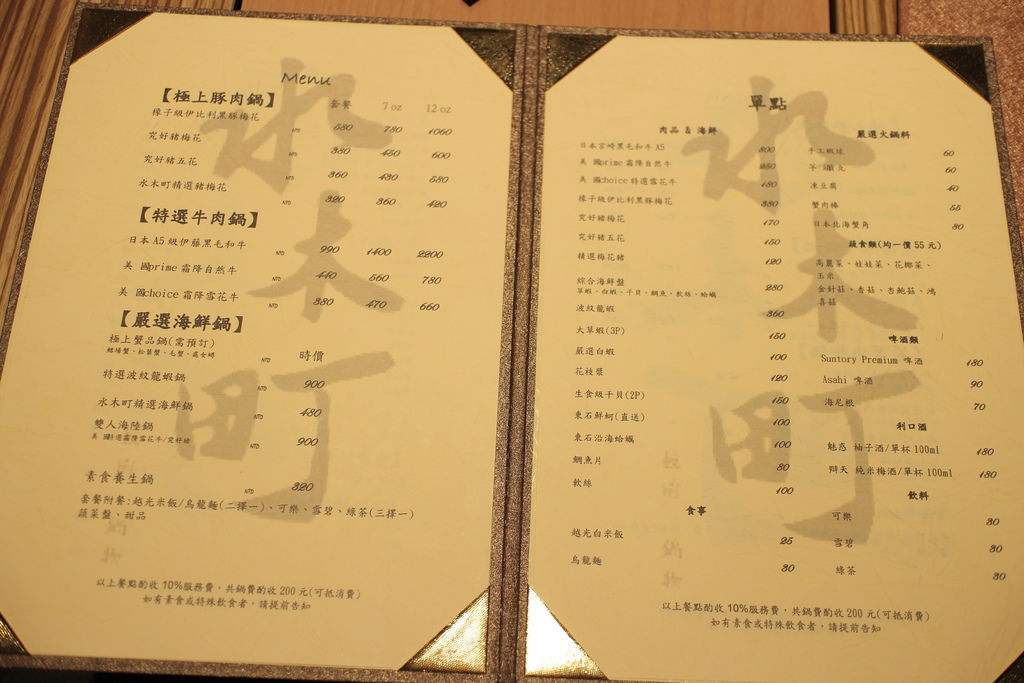 Menu
【極上豚肉鍋】 套餐 7 oz 12 oz
橡子級伊比利黑豚梅花 NTD 580 780 1060
究好豬梅花 NTD 380 450 600
究好豬五花 NTD 360 430 580
水木町精選豬梅花 NTD 320 360 420
【特選牛肉鍋】
日本 A5 級伊藤黑毛和牛 NTD 990 1400 2200
美國prime 霜降自然牛 NTD 440 560 780
美國choice 霜降雪花牛 NTD 380 470 660
【嚴選海鮮鍋】
極上蟹品鍋(需預訂) NTD 時價
鱈場蟹、松葉蟹、毛蟹、處女蟳
特選波紋龍蝦鍋 NTD 900
水木町精選海鮮鍋 NTD 480
雙人海陸鍋 NTD 900
美國特選霜降雪花牛/究好豬
素食養生鍋 NTD 320
套餐附餐:越光米飯/烏龍麵(二擇一)、可樂、雪碧、綠茶(三擇一)
蔬菜盤、甜品
以上餐點酌收 10%服務費，共鍋費酌收 200 元(可抵消費)
如有素食或特殊飲食者，請提前告知
水木町
單點
肉品 & 海鮮
日本宮崎黑毛和牛 A5 800
美國prime 霜降自然牛 250
美國choice 特選雪花牛 180
橡子級伊比利黑豚梅花 380
究好豬梅花 170
究好豬五花 150
精選梅花豬 120
綜合海鮮盤 280
草蝦、白蝦、干貝、鯛魚、軟絲、蛤蠣
波紋龍蝦 360
大草蝦(3P) 150
嚴選白蝦 100
花枝漿 120
生食級干貝(2P) 150
東石鮮蚵(直送) 100
東石沿海蛤蠣 100
鯛魚片 80
軟絲 100
食事
越光白米飯 25
烏龍麵 30
嚴選火鍋料
手工蝦球 60
芋頭丸 60
凍豆腐 40
蟹肉棒 55
日本北海蟹角 80
蔬食類(均一價 55 元)
高麗菜、娃娃菜、花椰菜、
玉米
金針菇、香菇、杏鮑菇、鴻
喜菇
啤酒類
Suntory Premium 啤酒 180
Asahi 啤酒 90
海尼根 70
利口酒
魅惑 柚子酒/單杯 100ml 180
辯天 純米梅酒/單杯 100ml 180
飲料
可樂 30
雪碧 30
綠茶 30
以上餐點酌收 10%服務費，共鍋費酌收 200 元(可抵消費)
如有素食或特殊飲食者，請提前告知
水木町